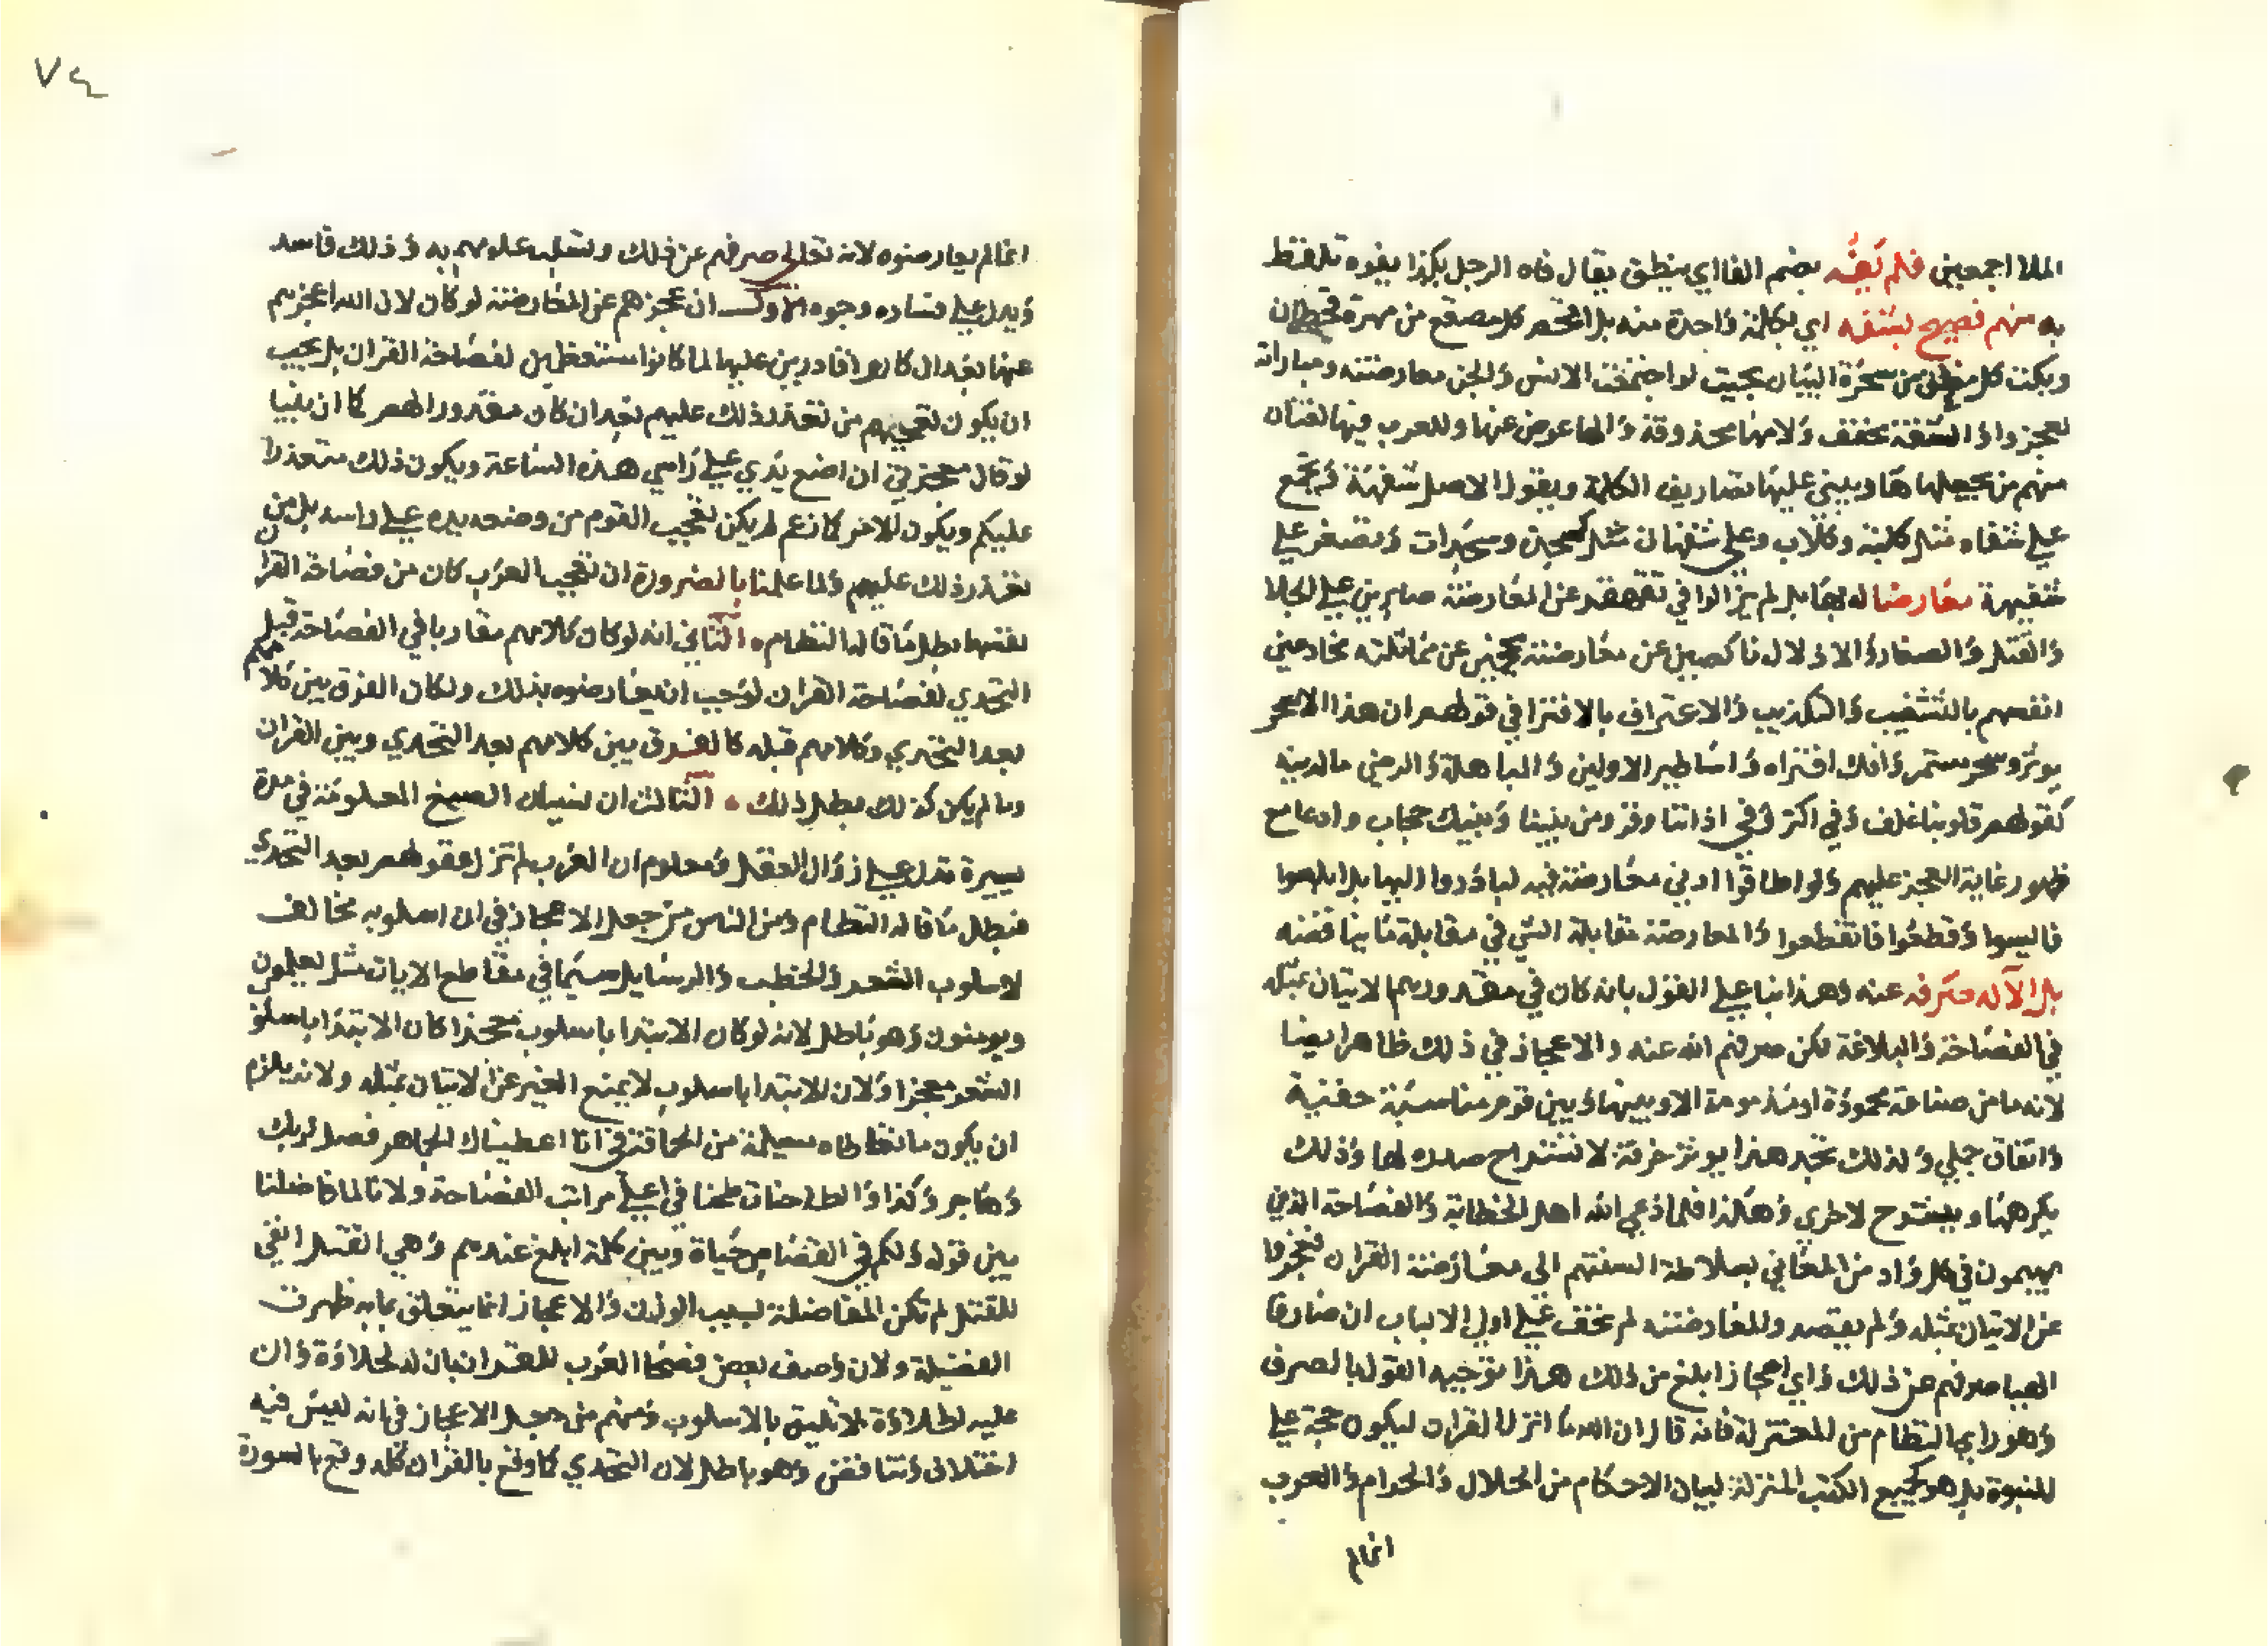 الملا اجمعين فلم يَفُه بضم الفا اي ينطق يقال فاه الرجل بكذا يفوه تلفظ
به منهم فصيح بشفه اي بكلمة واحدة منه بل افحم كل مصقع من مهرة قحطان
وبكت كل مفلق من سحرة البيان بحيث لو اجتمعت الانس والجن معارضته ومباراته
لعجزوا والشفة مخفف ولامها محذوفة والها عوض عنها وللعرب فيها لغتان
منهم من يجعلها ها ويبني عليها تصاريف الكلمة ويقول الاصل شفهة وتجمع
علي شفاه مثل كلبة وكلاب وعلي شفهات مثل سجدة وسجدات وتصغر علي
شفيهة معارضا له بها بل لم يزالوا في تقهقر عن المعارضة صابرين علي الجلا
والقتل والصغار والاذلال ناكصين عن معارضته عجزين عن مماثلته مخادعين
انفسهم بالتشغيب والتكذيب والاعتراف بالافترا في قولهم ان هذا الا سحر
يوثر وسحر مستمر وافك افتراه واساطير الاولين والمباهلة والرضي بالدنية
كقولهم قلوبنا غلف وفي اكنة وفي اذاننا وقر ومن بيننا وبينك حجاب وادعا مع
ظهور غاية العجز عليهم ولو اطاقوا ادني معارضة فيه لبادروا اليها بل ابلسوا
فاليسوا وقطعوا فانقطعوا والمعارضة مقابلة الشي في مقابلة ما يناقضه
بل الاله صرفه عنه وهذا بنا علي القول بانه كان في مقدورهم الاتيان بمثله
في الفصاحة والبلاغة لكن صرفهم الله عنه والاعجاز في ذلك ظاهر ايضا
لانه ما من صناعة محمودة او مذمومة الا وبينها وبين قوم مناسبة خفية
واتفاق جملي ولذلك تجد هذا يوثر حرفة لانشراح صدره لها وذلك
يكرهها وينشرح لاخري وهكذا فلما دعي الله اهل الخطابة والفصاحة الذين
يهيمون في كل واد من المعاني بسلاطة السنتهم الي معارضة القران فعجزوا
عن الاتيان بمثله ولم يقصدوا لمعارضته لم يخف علي اولي الالباب ان صارفا
الهيا صرفهم عن ذلك واي اعجاز ابلغ من ذلك هذا توجيه القول بالصرف
وهو راي النظام من المعتزلة فانه قال ان الله ما انزل القران ليكون حجة علي
للنبوة بل هو كجميع الكتب المنزلة لبيان الاحكام من الحلال والحرام والعرب
انما لم
٧٤
انما لم يعارضوه لانه تعالي صرفهم عن ذلك وسلب علومهم به وذلك فاسد
ويدل علي فساده وجوه الاول ان عجزهم عن المعارضة لو كان لان الله اعجزهم
عنها بعد ان كانوا قادرين عليها لما كانوا مستعظمين لفصاحة القران بل يجب
ان يكون تعجبهم من تعذر ذلك عليهم بعد ان كان مقدورا لهم كما ان نبيا
لو قال معجزتي ان اضع يدي علي راسي هذه الساعة ويكون ذلك متعذرا
عليكم ويكون الامر كما زعم لم يكن تعجب القوم من وضعه يده علي راسه بل من
تعذر ذلك عليهم ولما علمنا بالضرورة ان تعجب العرب كان من فصاحة القران
نفسها بطل ما قاله النظام الثاني انه لو كان كلامهم مقاربا في الفصاحة قبل
التحدي لفصاحة القران لوجب ان يعارضوه بذلك ولكان الفرق بين كلامهم
بعد التحدي وكلامهم قبله كالفرق بين كلامهم بعد التحدي وبين القران
وما لم يكن كذلك بطل ذلك الثالث ان نسيان الصيغ المعلومة في مدة
يسيرة تدل علي زوال العقل ومعلوم ان العرب لم تزل عقولهم بعد التحدي
فبطل ما قاله النظام ومن الناس من جعل الاعجاز في ان اسلوبه مخالف
لاسلوب الشعر والخطب والرسايل سيما في مقاطع الايات مثل يعلمون
ويومنون وهو باطل لانه لو كان الابتدا باسلوب معجزا كان الابتدا باسلوب
الشعر معجزا ولان الابتدا باسلوب لا يمنع الغير عن الاتيان بمثله ولانه يلزم
ان يكون ما تعاطاه مسيلمة من الحماقة في انا اعطيناك الجاهر فصل لربك
وهاجر وكذا والطاحنات طحنا في اعلي مراتب الفصاحة ولانا لما فاضلنا
بين قوله ولكم في القصاص حياة وبين كلمة ابلغ عندهم وهي القتل انفي
للقتل لم تكن المفاضلة بسبب الوزن والاعجاز انما يتعلق بما به ظهرت
الفضيلة ولان وصف بعض فصحا العرب للقران بان له لحلاوة وان
عليه لطلاوة لا تليق بالاسلوب ومنهم من جعل الاعجاز في انه ليس فيه
اختلاف وتناقض وهو باطل لان التحدي كما وقع بالقران كله وقع بالسورة